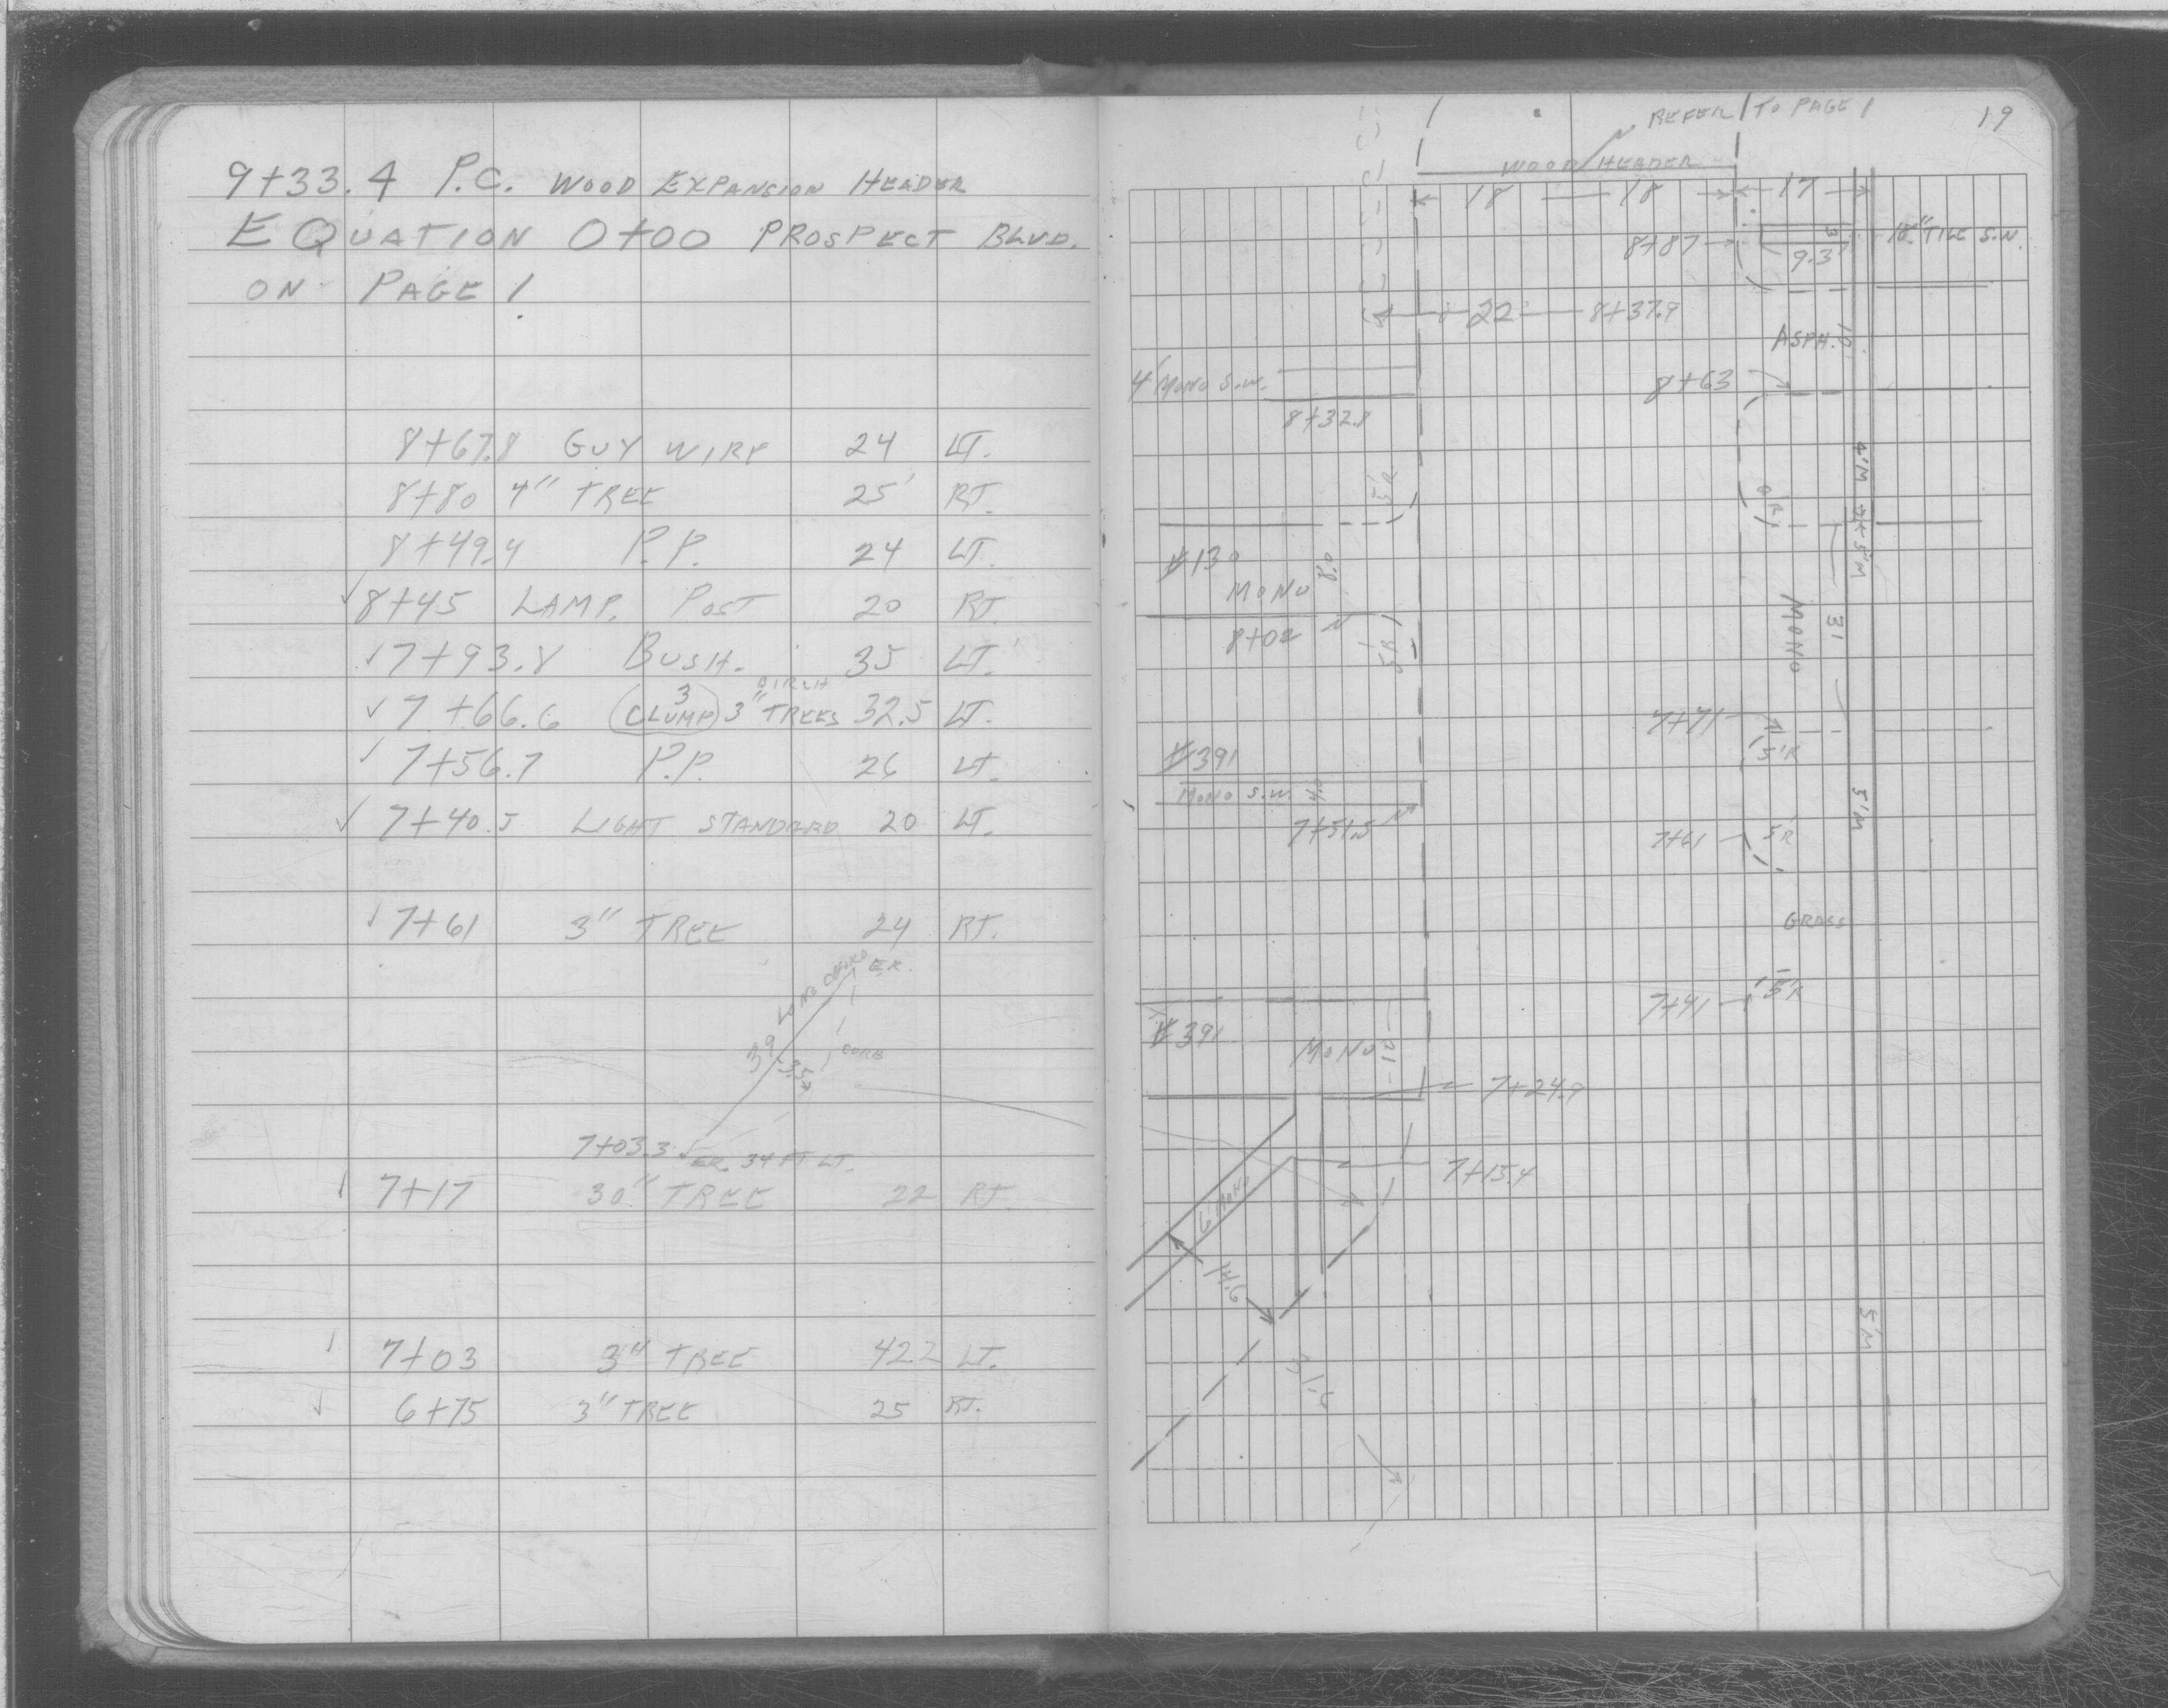 9+33.4 P.C. WOOD EXPANSION HEADER
EQUATION 0+00 PROSPECT BLVD.
ON PAGE 1
8+67.8 GUY WIRE 24 LT.
8+80 4" TREE 25' RT.
8+49.4 P.P. 24 LT.
✓8+45 LAMP. POST 20 RT.
✓7+93.8 BUSH. 35 LT.
BIRCH
✓7+66.6 (3 CLUMP) 3" TREES 32.5 LT.
✓7+56.7 P.P. 26 LT.
✓7+40.5 LIGHT STANDARD 20 LT.
✓7+61 3" TREE 24 RT.
E.R.
39 LONG CHORD
3.5
CURB
7+03.3 E.R. 34 FT LT.
✓7+17 30" TREE 22 RT.
✓7+03 3" TREE 42.2 LT.
✓6+75 3" TREE 25 RT.
REFER TO PAGE 1
19
WOOD HEADER
18 18 17
8+87
3
9.3
18" TILE S.W.
22 8+37.9
ASPH. 10
4' MONO S.W.
8+63
8+32.8
4'M
5'M
#130
MONO
8.0
8+02
MONO
31
7+71
5'R
#391
MONO S.W.
7+51.5
5'M
7+61
5'R
GRASS
7+41
5'R
#391
MONO
10
7+24.9
7+15.4
6' MONO
14.6
5'M